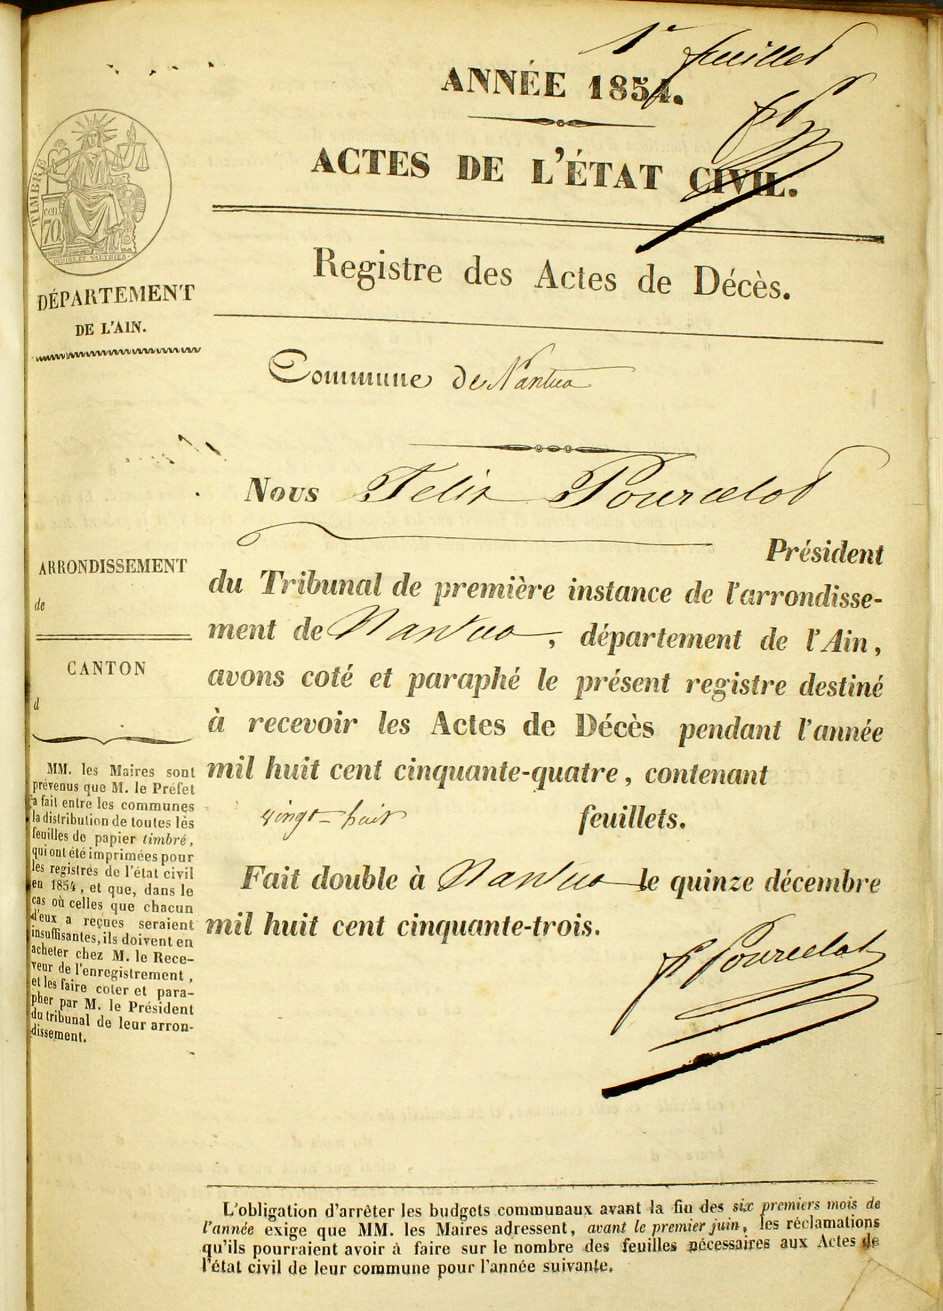 1er feuillet
ANNÉE 1854.
ACTES DE L'ÉTAT CIVIL.
Registre des Actes de Décès.
TIMBRE
cen
70
DÉPARTEMENT
DE L'AIN.
Commune de Nantua
Nous Felix Pourcelot
Président
du Tribunal de première instance de l'arrondisse-
ment de Nantua, département de l'Ain,
avons coté et paraphé le présent registre destiné
à recevoir les Actes de Décès pendant l'année
mil huit cent cinquante-quatre, contenant
vingt-huit feuillets.
Fait double à Nantua le quinze décembre
mil huit cent cinquante-trois.
F Pourcelot
ARRONDISSEMENT
de
CANTON
d
MM. les Maires sont
prévenus que M. le Préfet
a fait entre les communes
la distribution de toutes les
feuilles de papier timbré,
qui ont été imprimées pour
les registres de l'état civil
en 1854, et que, dans le
cas où celles que chacun
d'eux a reçues seraient
insuffisantes, ils doivent en
acheter chez M. le Rece-
veur de l'enregistrement,
et les faire coter et para-
pher par M. le Président
du tribunal de leur arron-
dissement.
L'obligation d'arrêter les budgets communaux avant la fin des six premiers mois de
l'année exige que MM. les Maires adressent, avant le premier juin, les réclamations
qu'ils pourraient avoir à faire sur le nombre des feuilles nécessaires aux Actes de
l'état civil de leur commune pour l'année suivante.